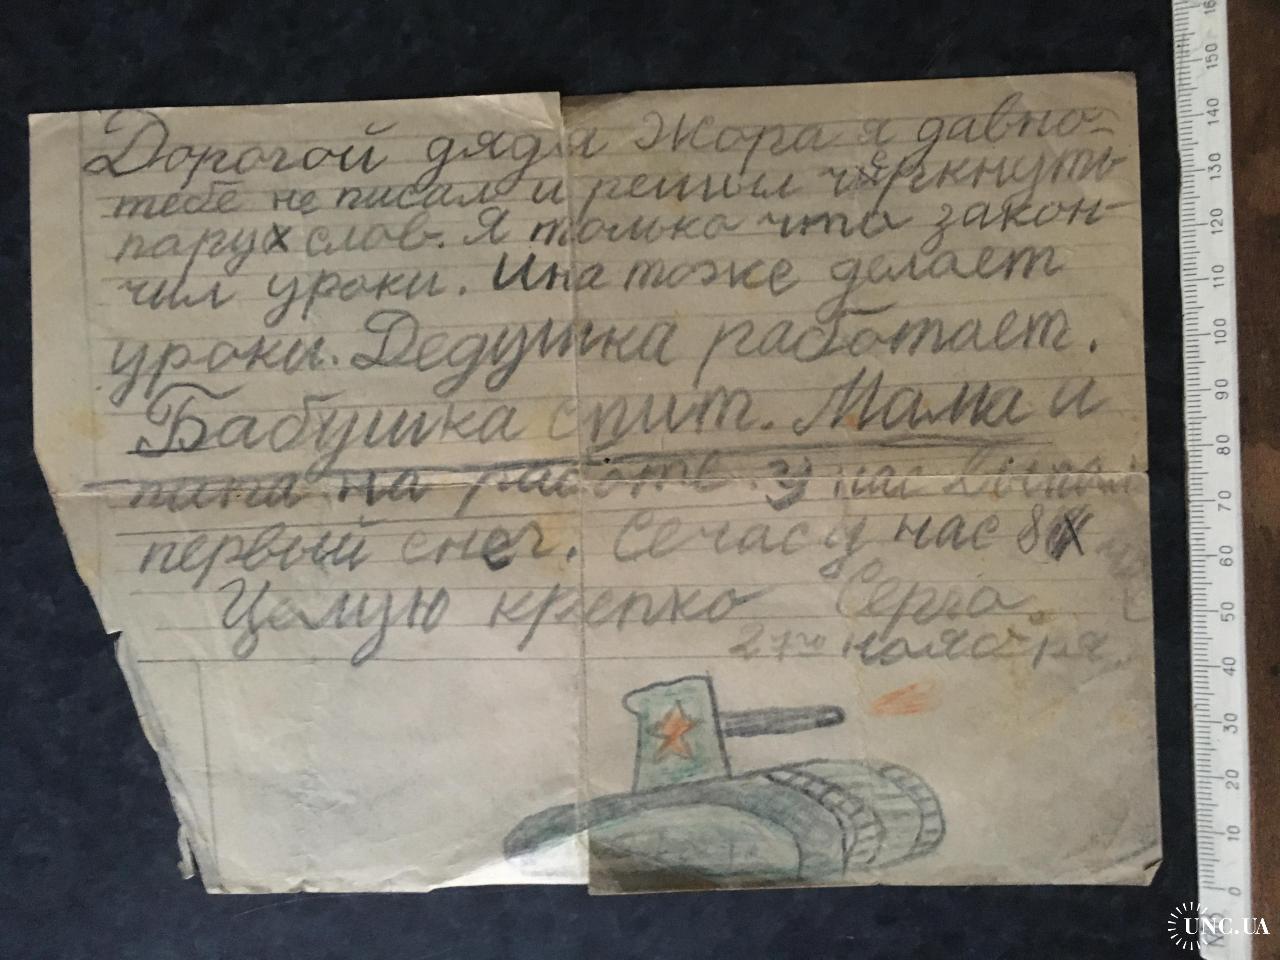 Дорогой дядя Жора я давно-
тебе не писал и решил черкнуть
пару слов. Я только что закон-
чил уроки. Ина тоже делает
уроки. Дедушка работает.
Бабушка спит. Мама и
папа на работе. У нас выпал
первый снег. Сечас у нас 8
Целую крепко Серго
27го ноября.
160
150
140
130
120
110
100
90
80
70
60
50
40
30
20
10
0
UNC.UA